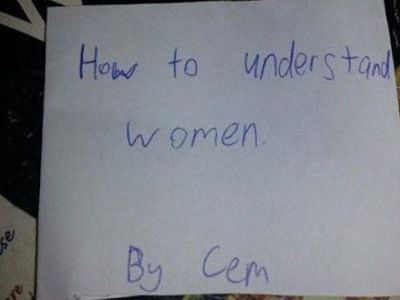 How to understand
women.
By Cem